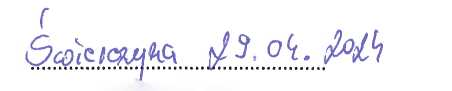 Świerczyna 29.04.2024